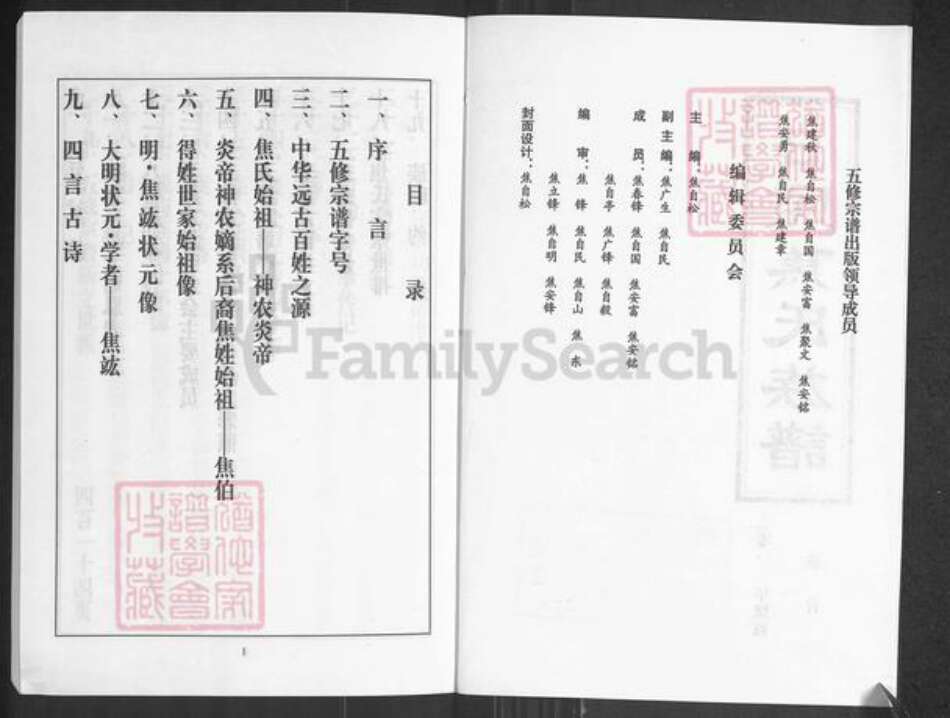 五修宗谱出版领导成员
焦建秋 焦自松 焦自国 焦安富 焦聚文 焦安铭
焦安勇 焦自民 焦建章
编辑委员会
主 编：焦自松
副主编：焦广生 焦自民
成 员：焦春锋 焦自国 焦安富 焦安铭
焦自亭 焦广锋 焦自毅
编 审：焦 锋 焦自民 焦自山 焦 东
焦立锋 焦自明 焦安锋
封面设计：焦自松
目 录
一、序 言
二、五修宗谱字号
三、中华远古百姓之源
四、焦氏始祖——神农炎帝
五、炎帝神农嫡系后裔焦姓始祖——焦伯
六、得姓世家始祖像
七、明·焦竑状元像
八、大明状元·学者——焦竑
九、四言古诗
1
FamilySearch
譜學會
收藏
譜學會
收藏